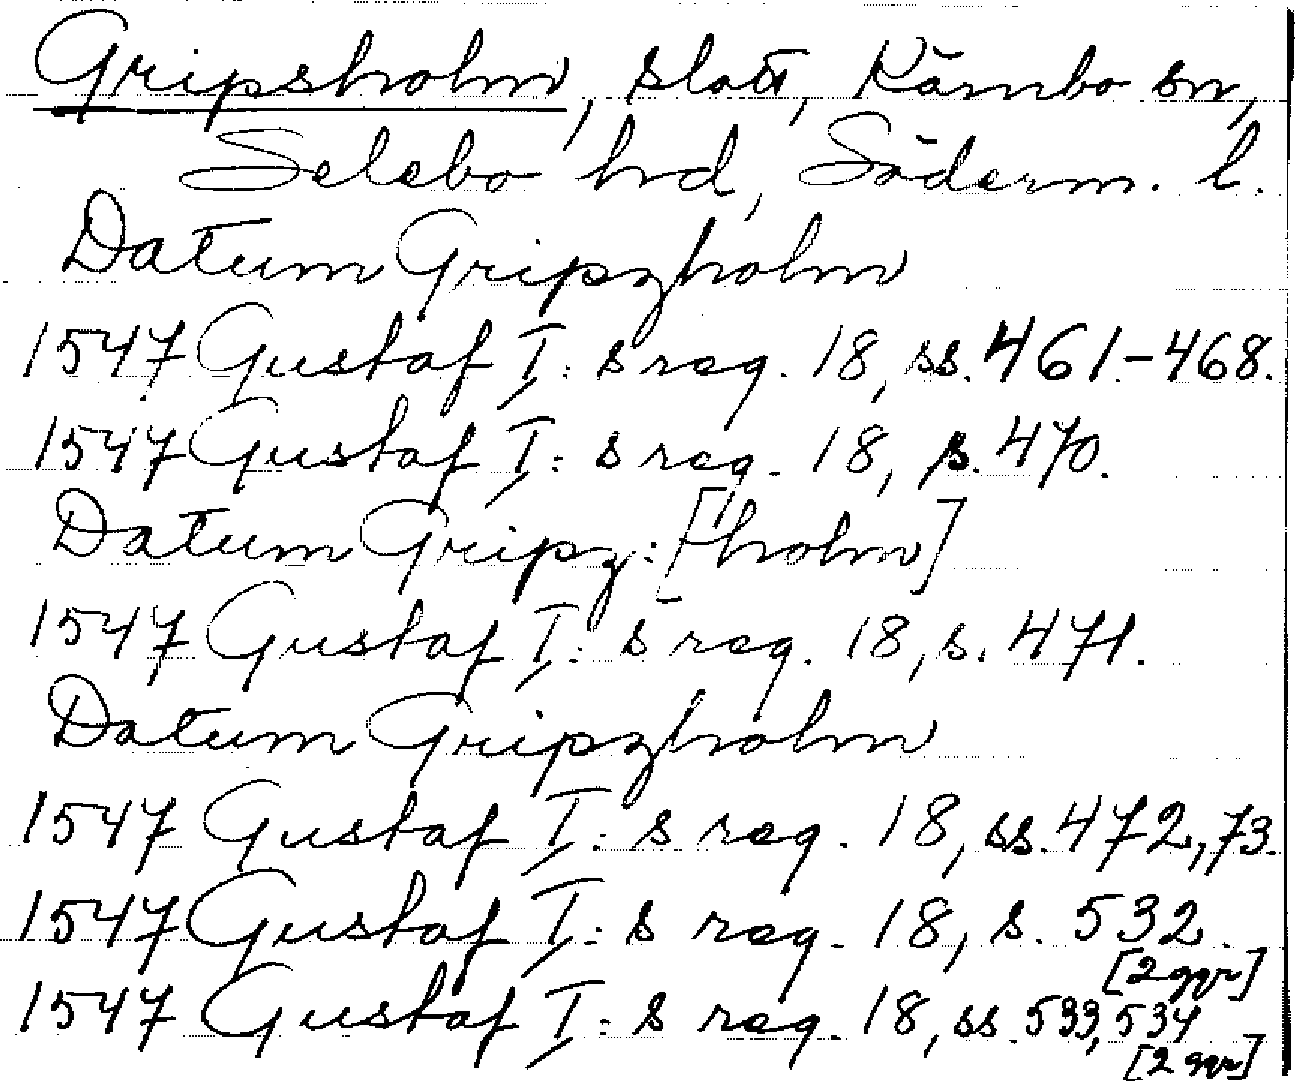 Gripsholm, slott, Kärnbo sn,
Selebo hd, Söderm. l.
Datum Gripzholm
1547 Gustaf I:s reg. 18, ss. 461-468.
1547 Gustaf I:s reg. 18, s. 470.
Datum Gripz:[holm]
1547 Gustaf I:s reg. 18, s. 471.
Datum Gripzholm
1547 Gustaf I:s reg. 18, ss. 472, 73.
1547 Gustaf I:s reg. 18, s. 532.
[2 ggr]
1547 Gustaf I:s reg. 18, ss. 533, 534
[2 ggr]